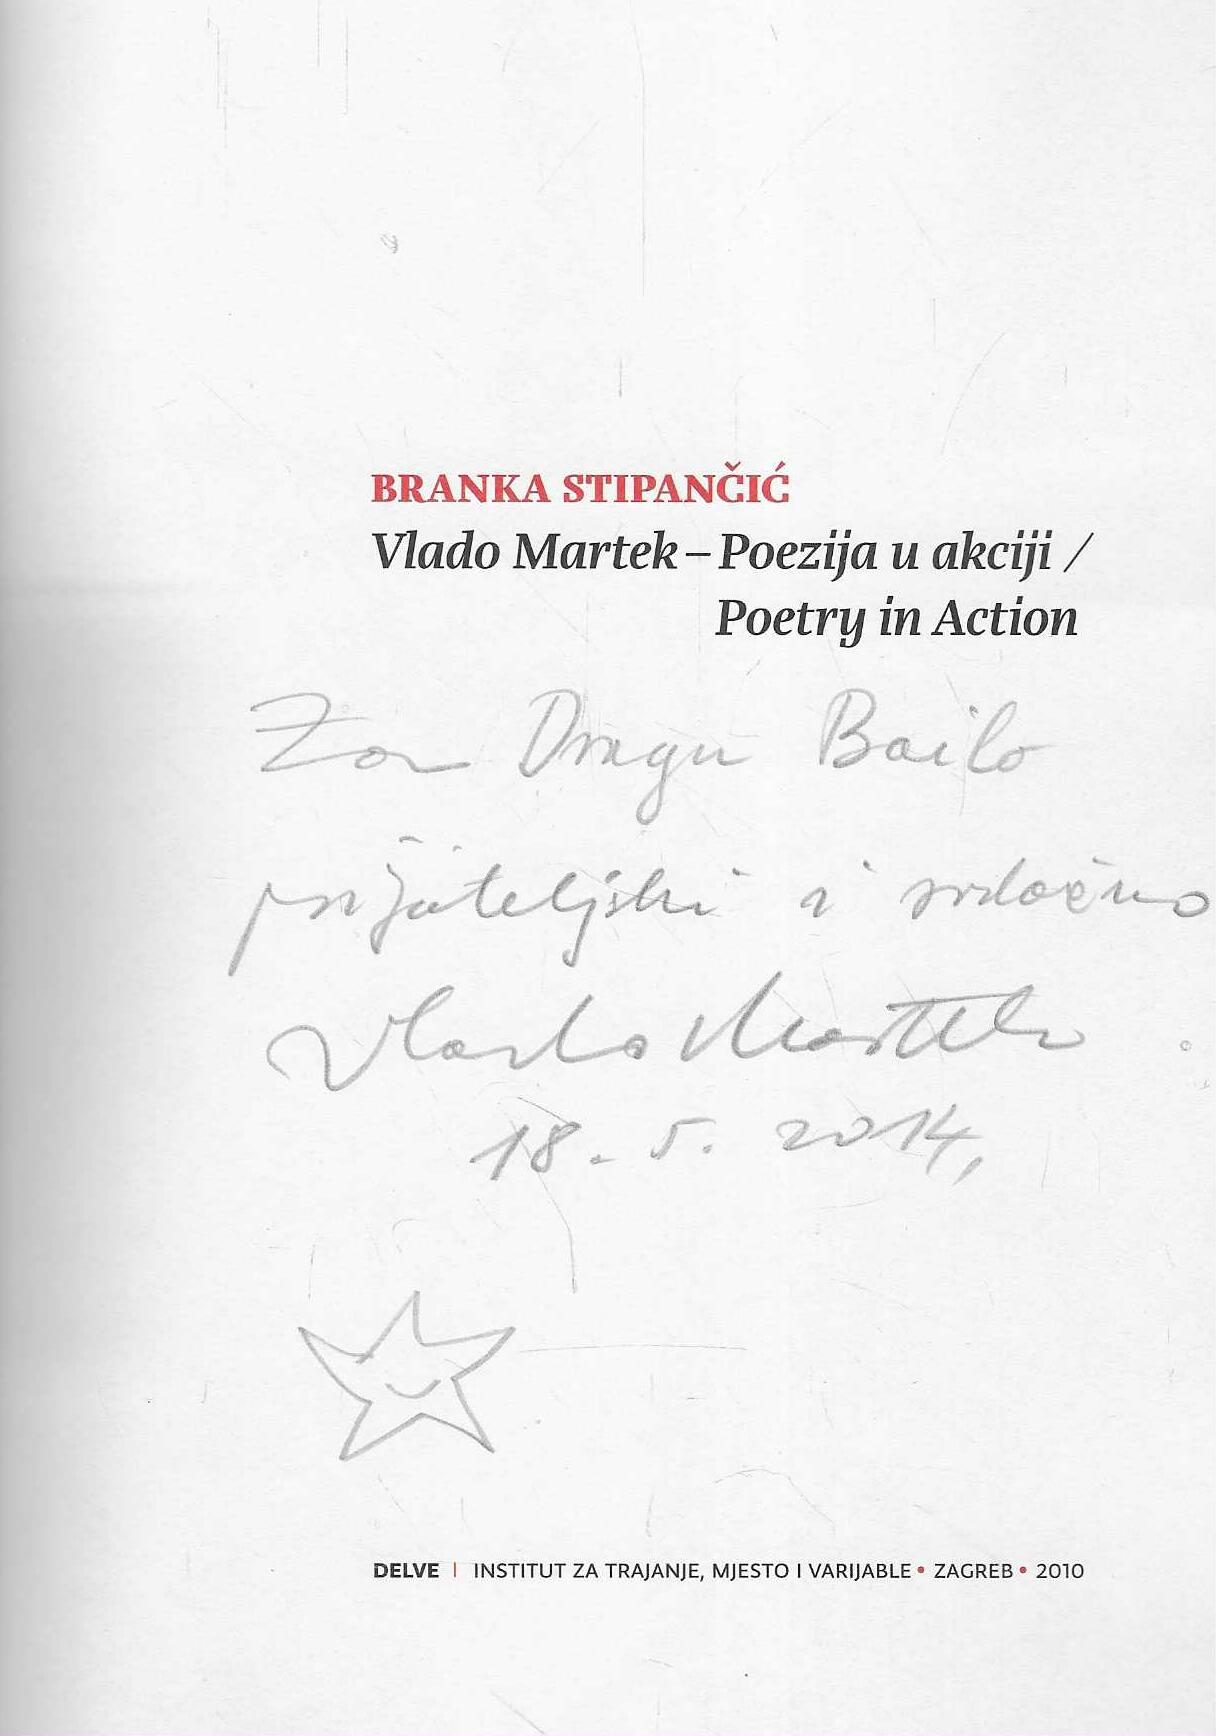 BRANKA STIPANČIĆ
Vlado Martek – Poezija u akciji /
Poetry in Action
Za Dragu Bailo
prijateljski i srdačno
Vlado Martek
18. 5. 2014,
DELVE | INSTITUT ZA TRAJANJE, MJESTO I VARIJABLE • ZAGREB • 2010